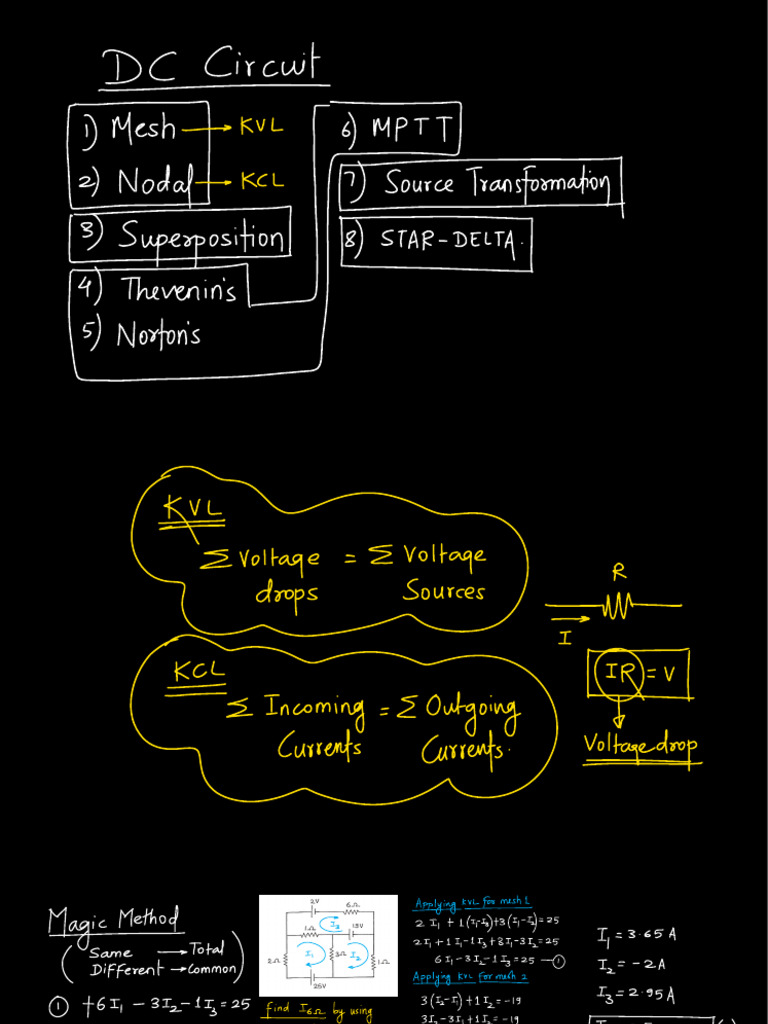 DC Circuit
1) Mesh → KVL
2) Nodal → KCL
3) Superposition
4) Thevenin's
5) Norton's
6) MPTT
7) Source Transformation
8) STAR-DELTA.
KVL
Σ Voltage drops = Σ Voltage Sources
R
I
IR = V
Voltage drop
KCL
Σ Incoming Currents = Σ Outgoing Currents.
Magic Method
(Same → Total
Different → Common)
① +6I₁ - 3I₂ - 1I₃ = 25
2V
6Ω
1Ω
I₃
2Ω
I₁
3Ω
I₂
1Ω
25V
find I6Ω by using
Applying KVL for mesh 1
2I₁ + 1(I₁-I₃) + 3(I₁-I₂) = 25
2I₁ + 1I₁ - 1I₃ + 3I₁ - 3I₂ = 25
6I₁ - 3I₂ - 1I₃ = 25 — ①
Applying KVL for mesh 2
3(I₂-I₁) + 1I₂ = -19
3I₂ - 3I₁ + 1I₂ = -19
I₁ = 3.65 A
I₂ = -2A
I₃ = 2.95 A